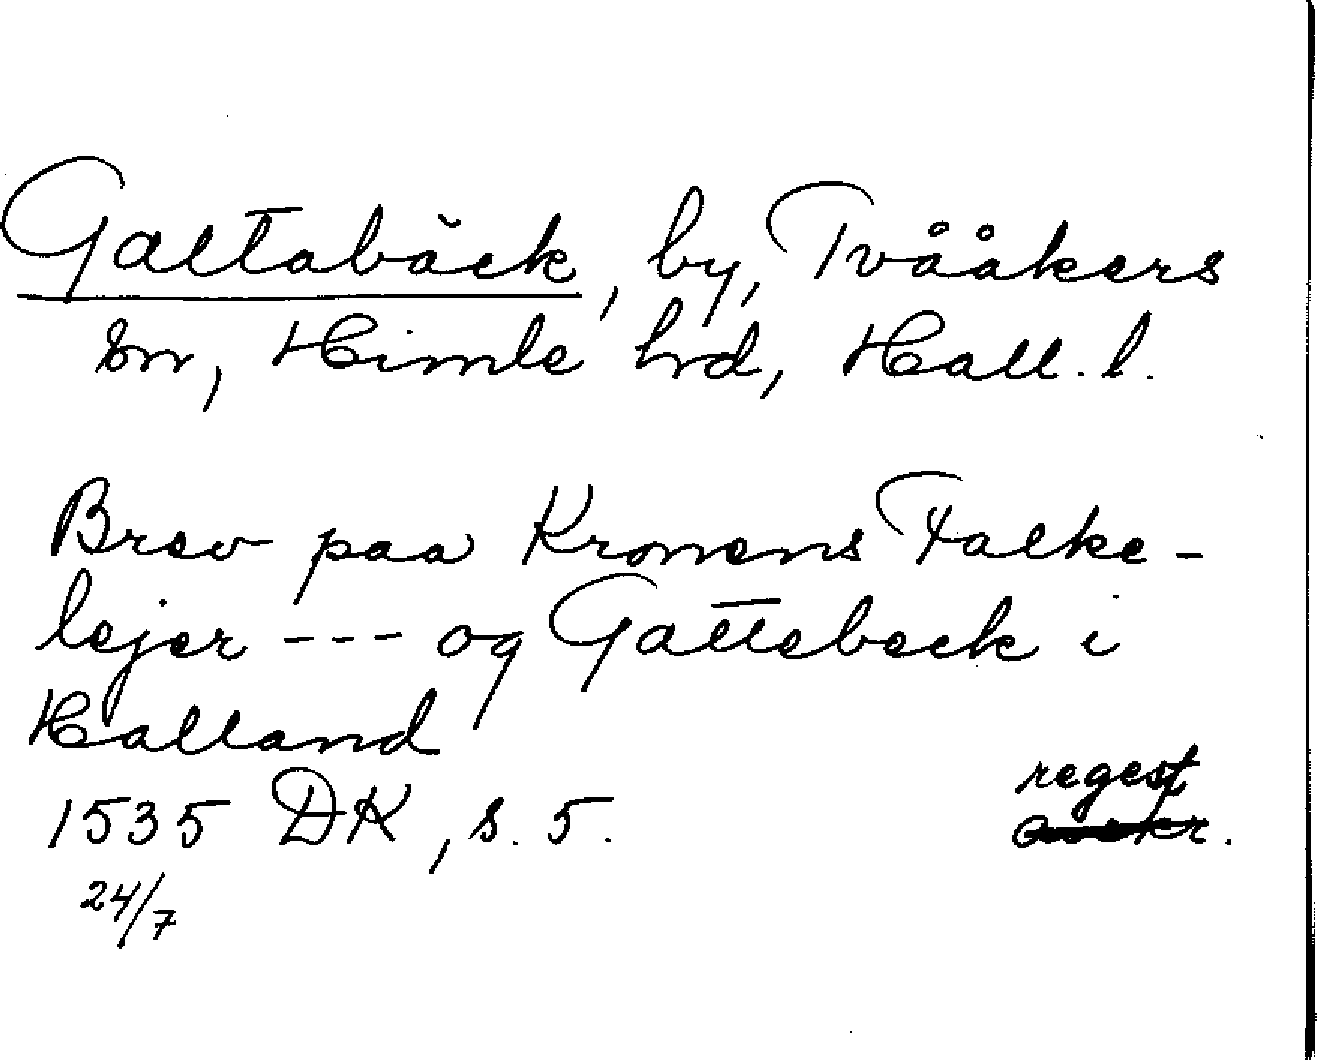 Galtabäck, by, Tvååkers
sn, Himle hrd, Hall. l.
Brev paa Kronens Falke-
lejer --- og Galtebeck i
Halland
1535 DK, s. 5.
24/7
regest
avskr.